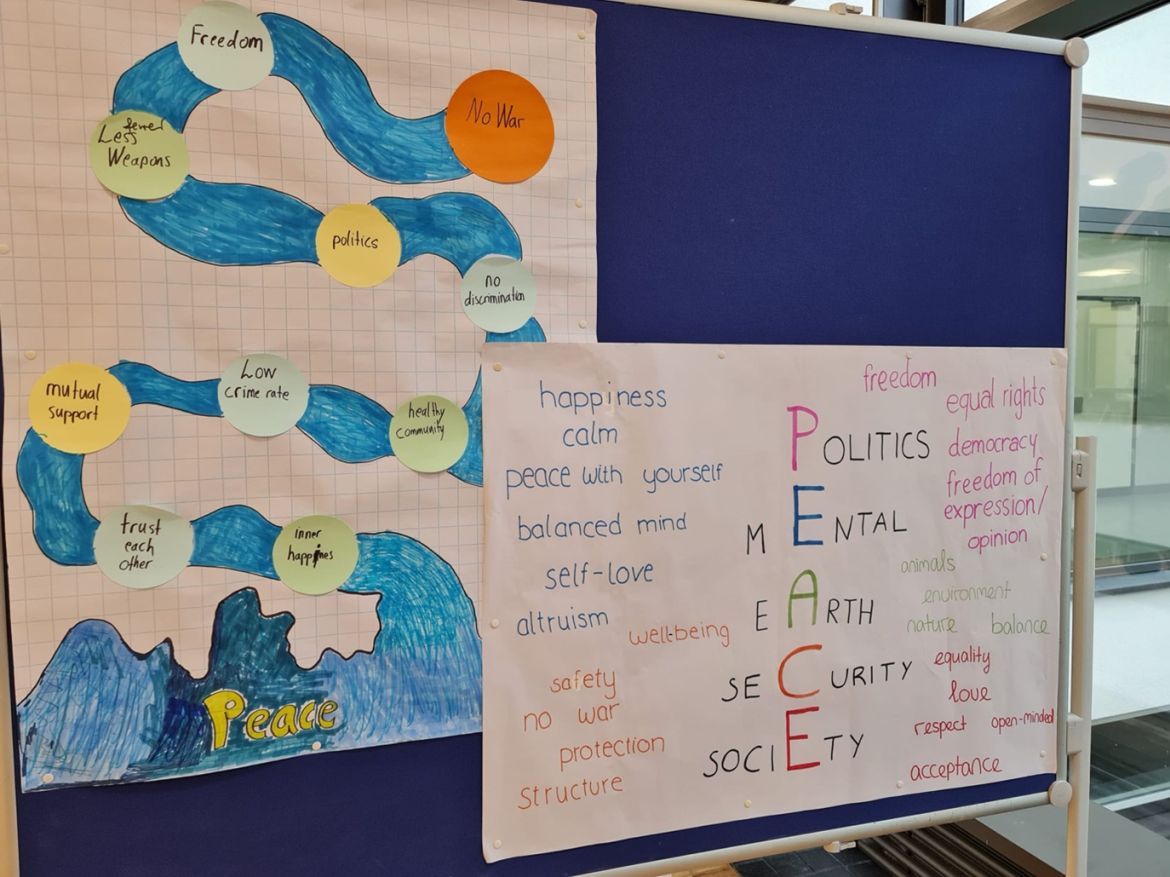 Freedom
No War
fewer
Less
Weapons
politics
no
discrimination
mutual
support
Low
crime rate
healthy
community
trust
each
other
inner
happines
Peace
happiness
calm
peace with yourself
balanced mind
self-love
altruism
well-being
safety
no war
protection
structure
POLITICS
MENTAL
EARTH
SECURITY
SOCIETY
freedom
equal rights
democracy
freedom of
expression/
opinion
animals
environment
nature balance
equality
love
respect open-minded
acceptance